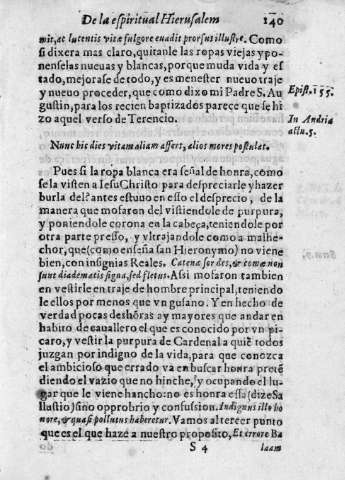 De la espiritual Hierusalem 140
mit, ac lucentis vitæ fulgore euadit prorsus illustre. Como
si dixera mas claro, quitanle las ropas viejas y po-
nenselas nueuas y blancas, porque muda vida y es
tado, mejorase de todo, y es menester nueuo traje
y nueuo proceder, que como dixo mi Padre S. Au
gustin, para los recien baptizados parece que se hi
zo aquel verso de Terencio.
Epist. 155.
In Andria
actu. 5.
Nunc hic dies vitam aliam affert, alios mores postulat.
Pues si la ropa blanca era señal de honra, como
se la visten a Iesu Christo para despreciarle y hazer
burla del? antes estuuo en esso el desprecio, de la
manera que mofaron del vistiendole de purpura,
y poniendole corona en la cabeça, teniendole por
otra parte presso, y vltrajandole como a malhe-
chor, que (como enseña san Hieronymo) no viene
bien, con insignias Reales. Catenæ sordes, & comæ non
sunt diadematis signa, sed fletus. Assi mofaron tambien
en vestirle en traje de hombre principal, teniendo
le ellos por menos que vn gusano. Y en hecho de
verdad pocas deshõras ay mayores que andar en
habito de cauallero el que es conocido por vn pi-
caro, y vestir la purpura de Cardenal a quiẽ todos
juzgan por indigno de la vida, para que conozca
el ambicioso que errado va en buscar honra pretẽ
diendo el vazio que no hinche, y ocupando el lu-
gar que le viene hancho: no es honra essa (dize Sa
llustio) sino opprobrio y confussion. Indignus illo ho
nore, & quasi pollutus haberetur. Vamos al tercer punto
que es el que haze a nuestro proposito, Et errore Ba
S 4 laam